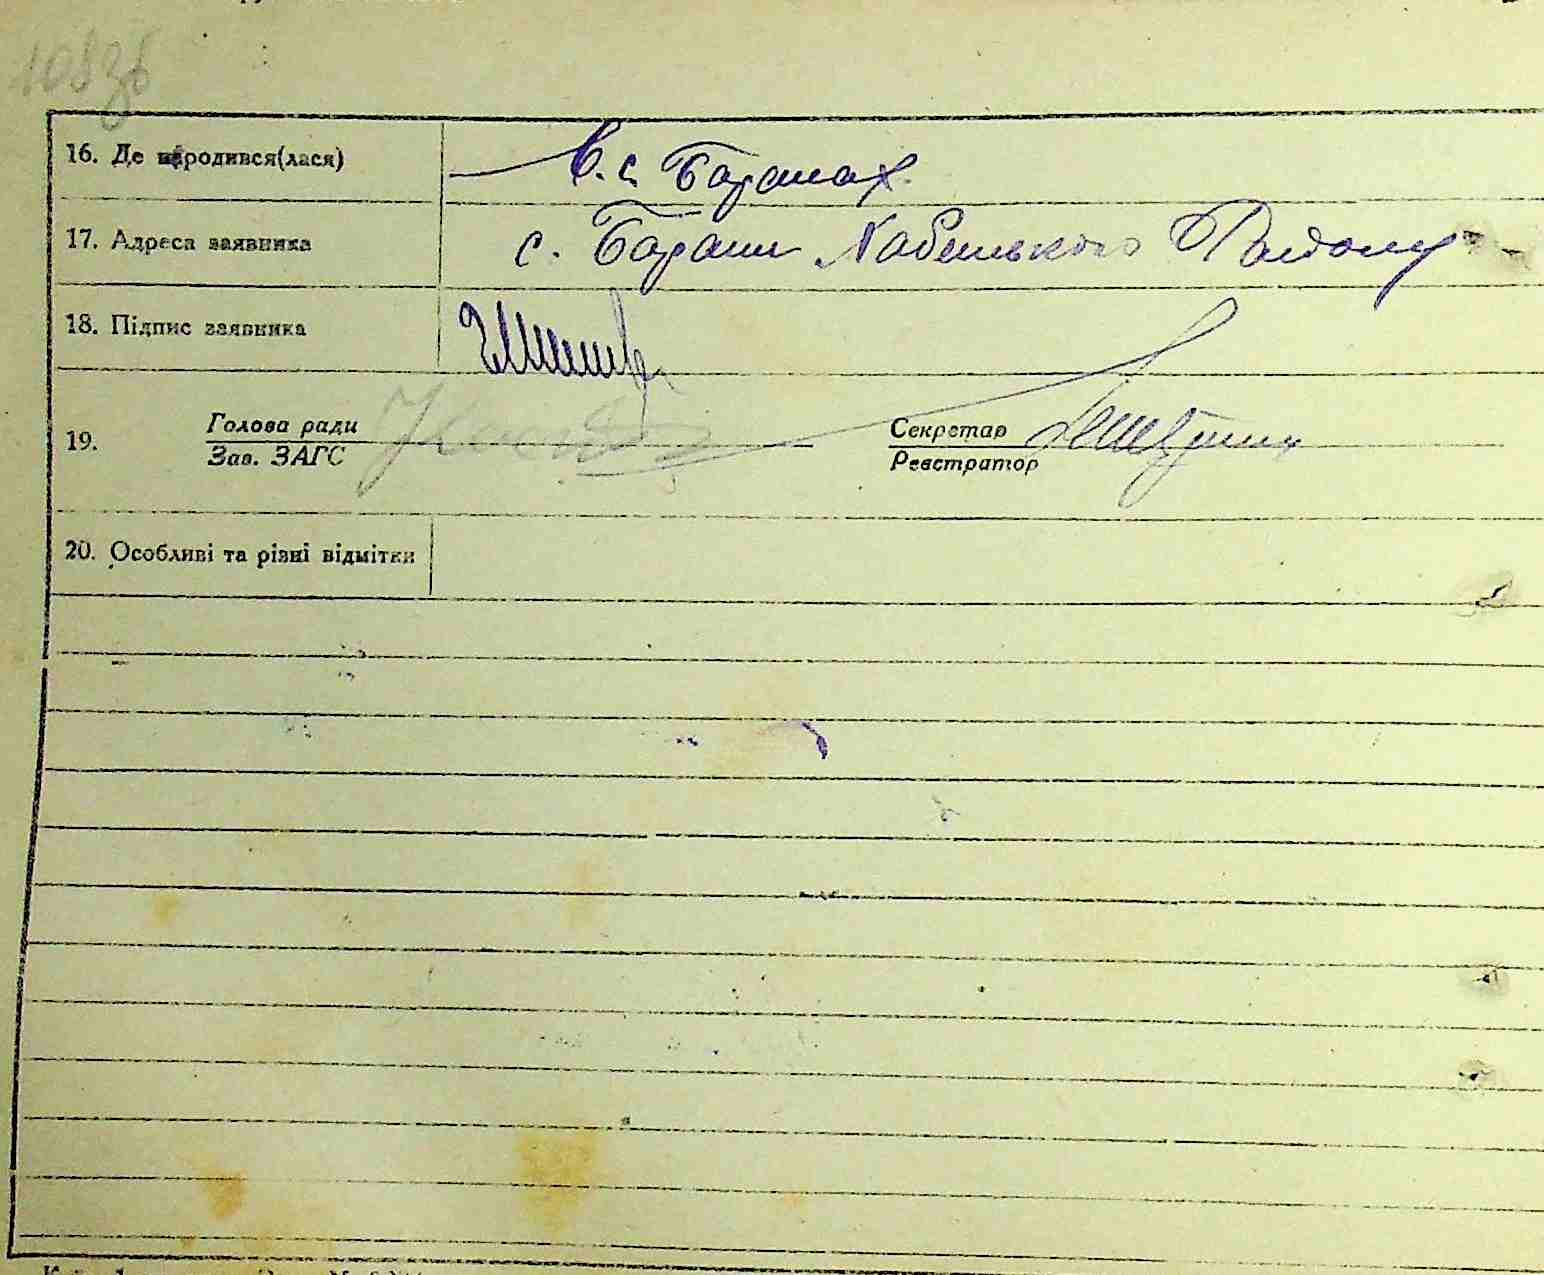 16. Де народився(лася) В с. Баранах.
17. Адреса заявника с. Барани Хабенського Району
18. Підпис заявника
19. Голова ради Секретар
Зав. ЗАГС Реєстратор
20. Особливі та різні відмітки